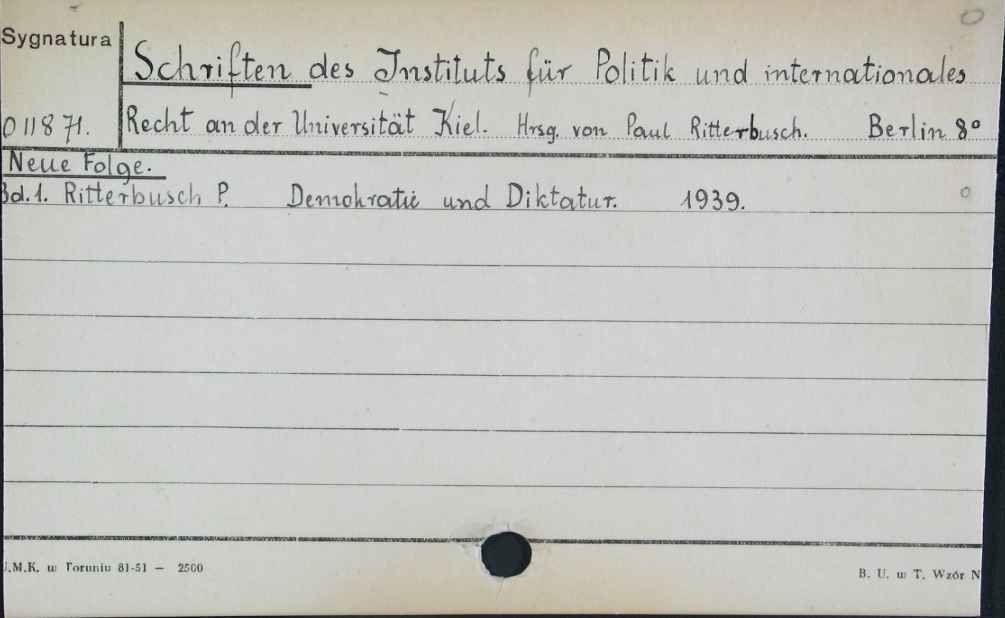 Sygnatura
Schriften des Instituts für Politik und internationales
011871. Recht an der Universität Kiel. Hrsg. von Paul Ritterbusch. Berlin 8°
Neue Folge.
Bd.1. Ritterbusch P. Demokratie und Diktatur. 1939.
U.M.K. w Toruniu 81-51 — 2500
B. U. w T. Wzór N